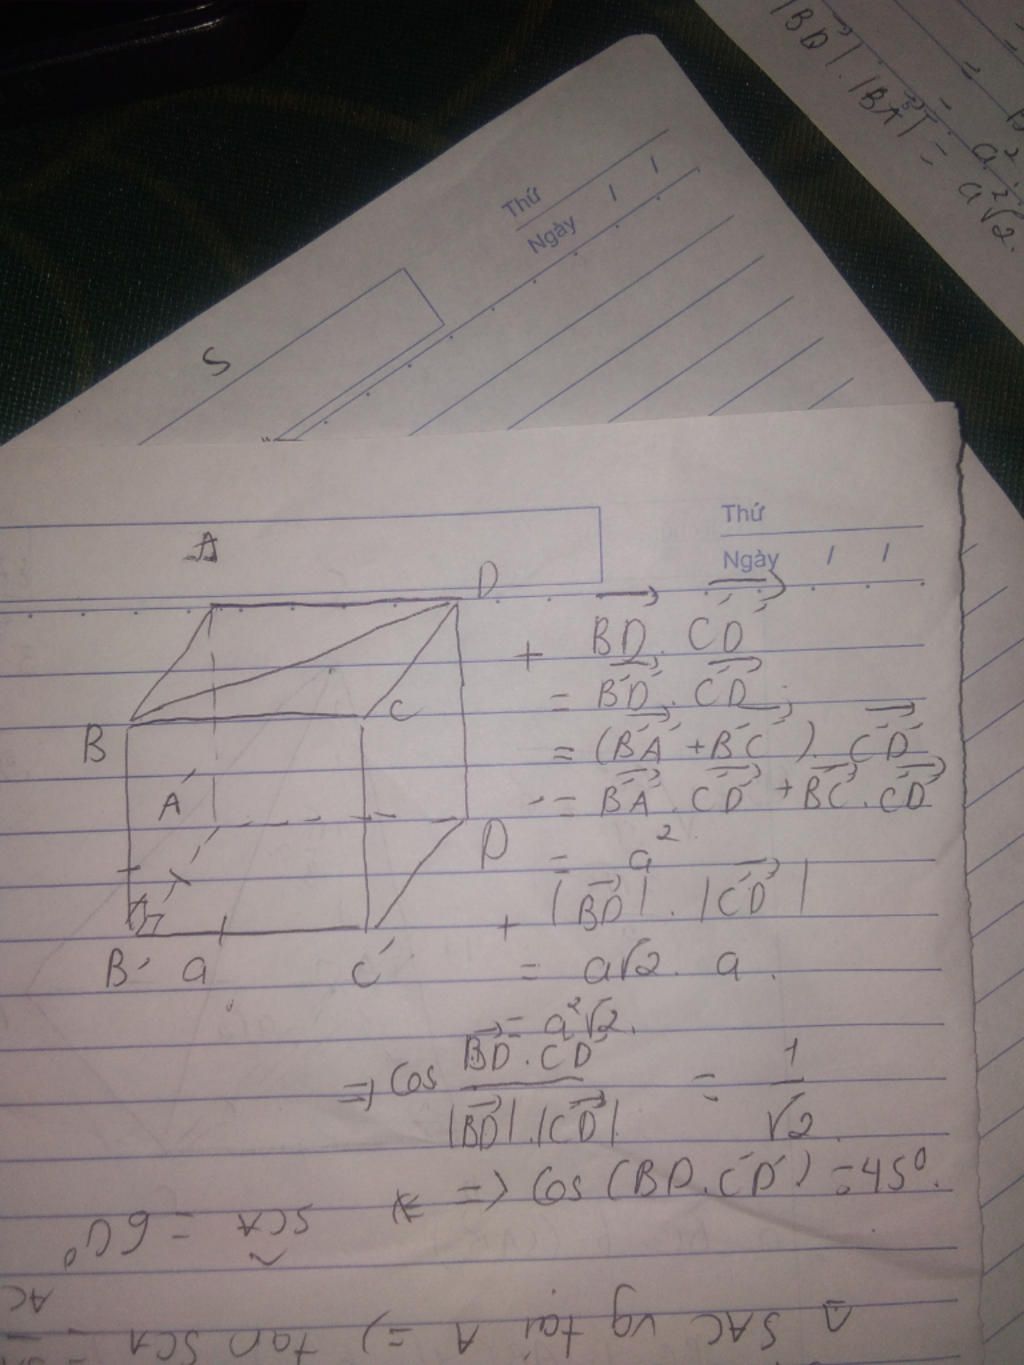 |BD|.|BA| =
a²
a²√2.
Thứ
Ngày / /
S
Thứ
Ngày / /
A
D
B
C
A'
D
B' a C'
+ BD . C'D'
= B'D' . C'D'
= (B'A' + B'C') . C'D'
= B'A' . C'D' + B'C' . C'D'
= a²
+ |BD| . |C'D'|
= a√2 . a .
= a²√2.
=> Cos BD . C'D' / |BD| . |C'D'| = 1/√2
=> Cos (BD . C'D') = 45°.
SCA = 60°
Δ SAC vg tại A => tan SCA =
AC